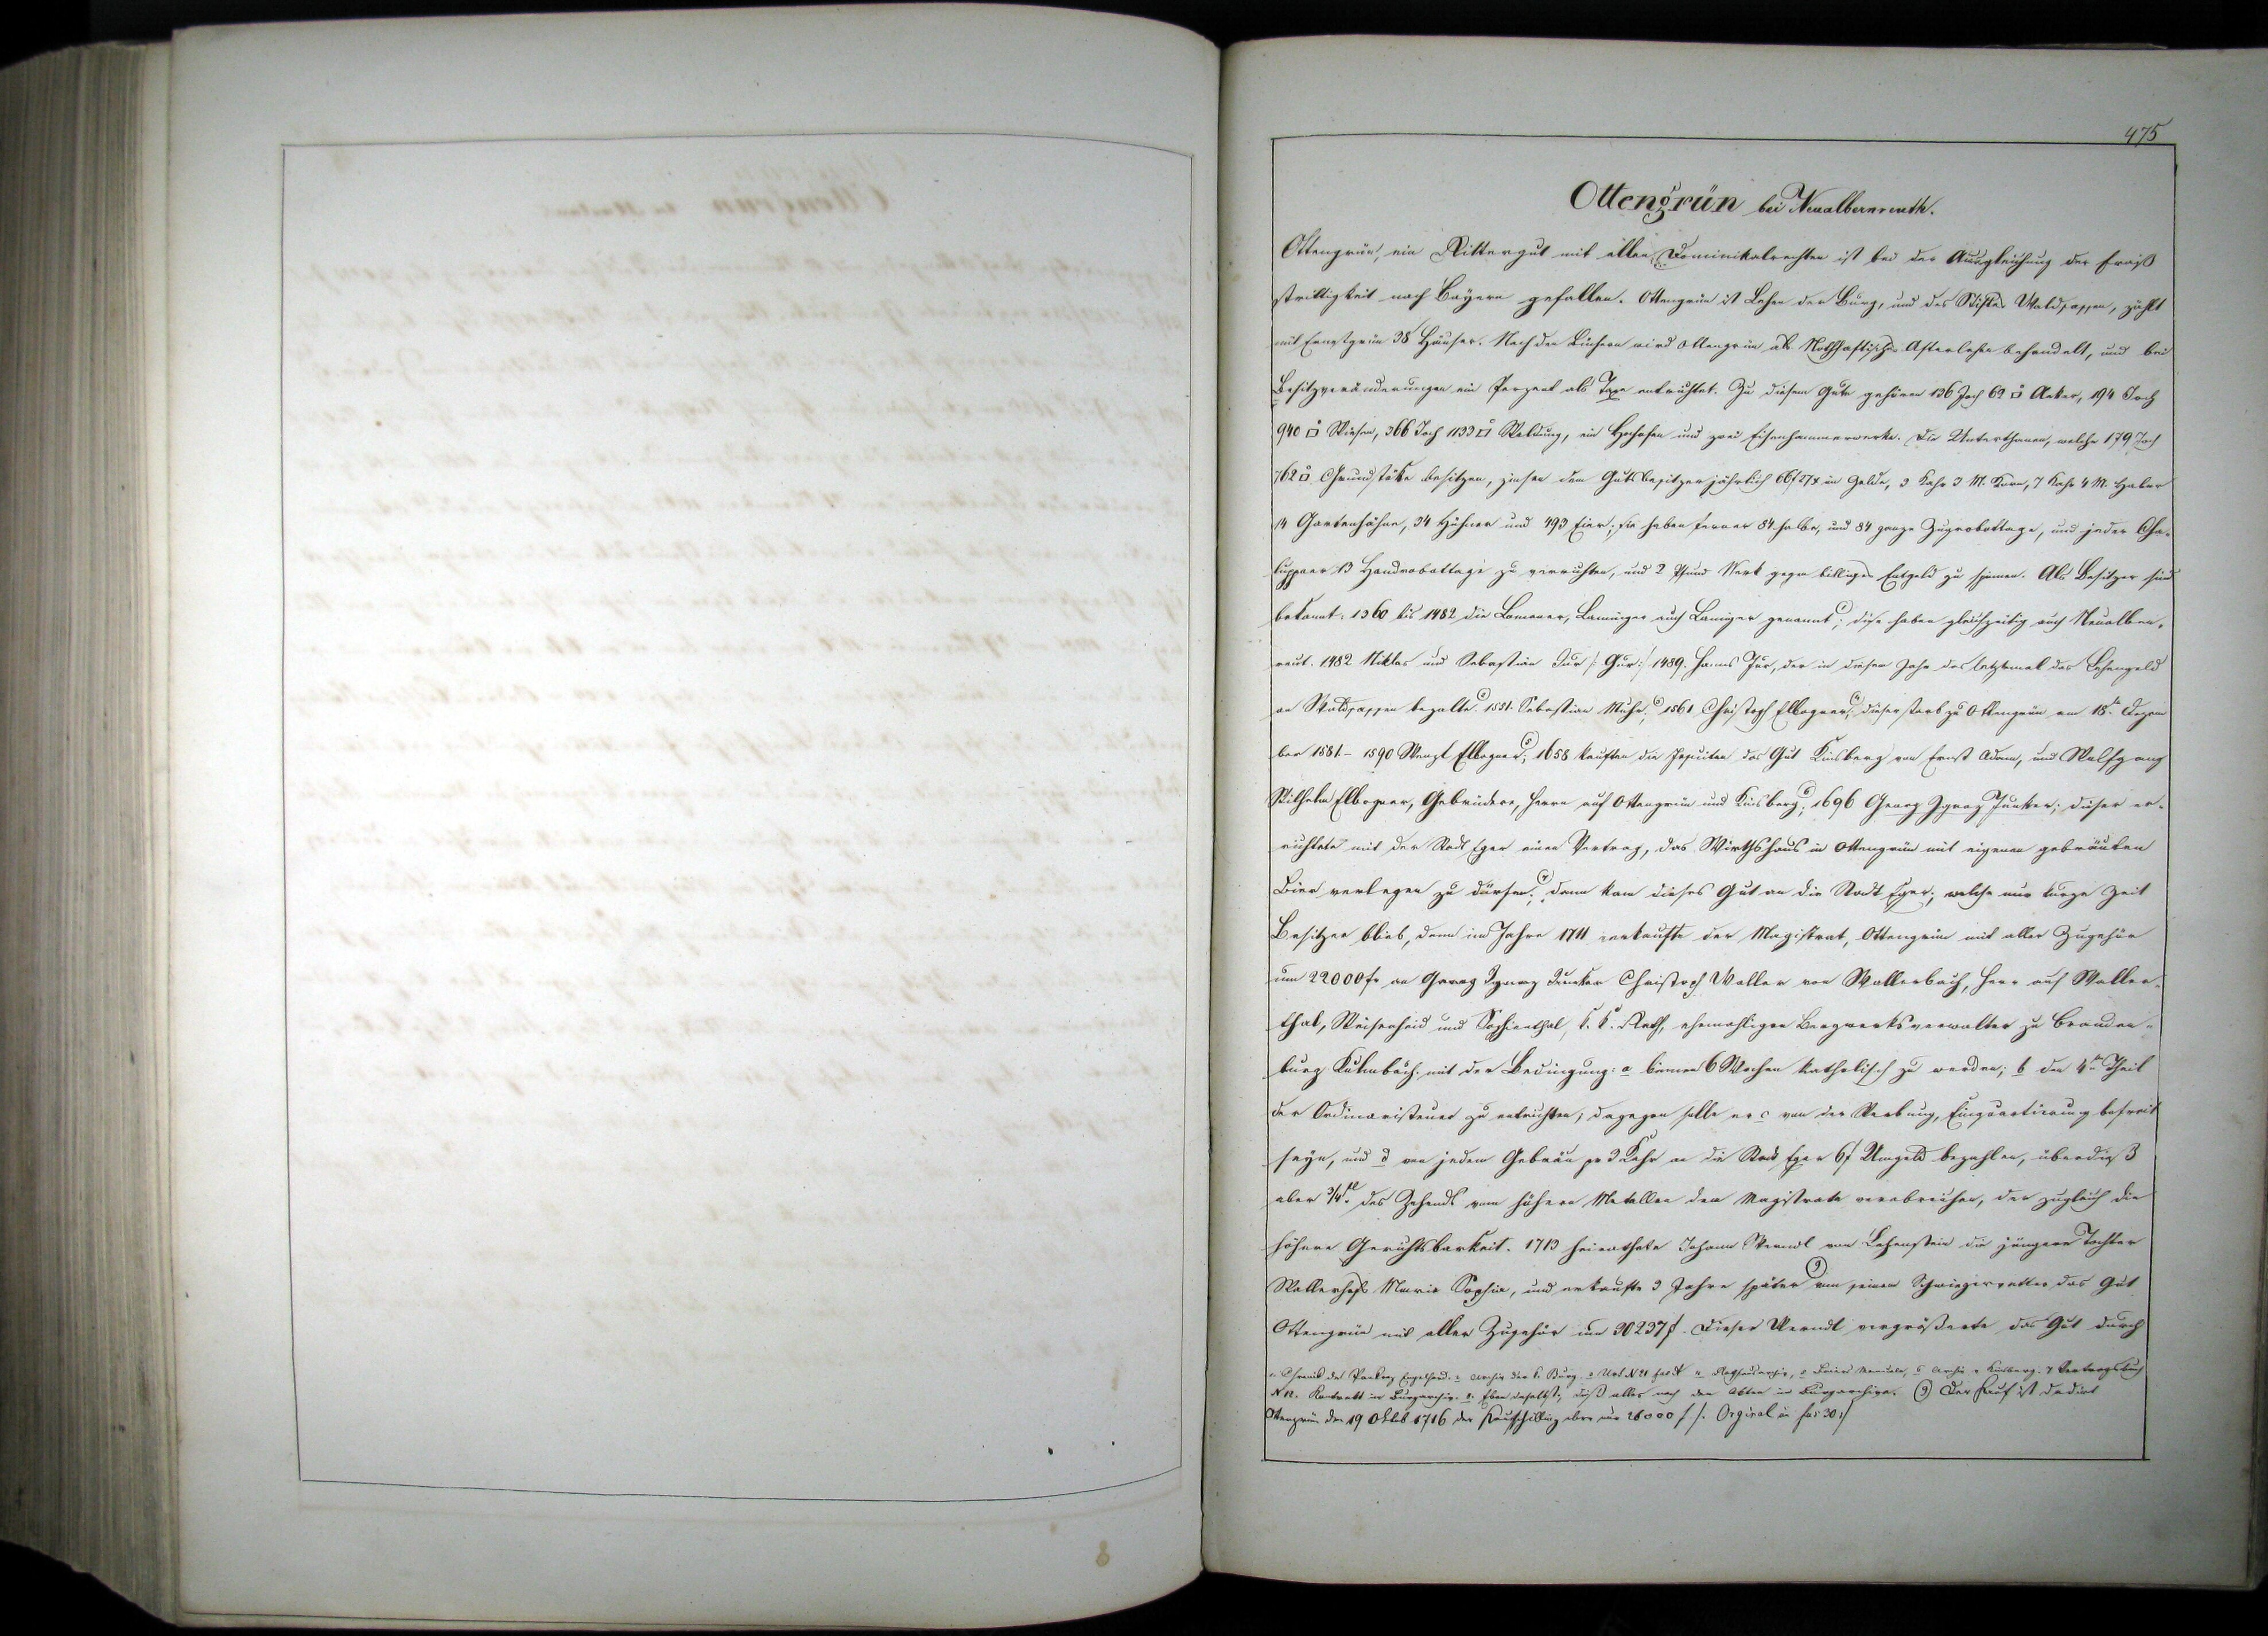 475
Ottengrün bei Neualbenreuth.
Ottengrün, ein Rittergut mit allen Dominikalrechten ist bei der Ausgleichung der Fraiß
strittigkeit nach Bayern gefallen. Ottengrün ist Lehen der Burg, und des Stiftes Waldsassen, zählt
mit Ernstgrün 38 Häuser. Nach den Büchern wird Ottengrün als Nothhaftisches Afterlehen behandelt, und bei
Besitzveränderungen ein Perzent als Taxe entrichtet. Zu diesem Gute gehören 136 Joch 62 □° Aeker, 194 Joch
940 □° Wiesen, 366 Joch 1133 □° Waldung, ein Hochofen und zwei Eisenhammerwerke. Die Unterthanen, welche 179 Joch
762 □° Grundstüke besitzen, zinsen dem Gutsbesitzer jährlich 66f 27x im Gelde, 3 Kahr 3 M. Korn, 7 Kahr 4 M. Haber
14 Gartenhähne, 34 Hühner und 493 Eier; sie haben ferner 84 halbe, und 84 ganze Zugrobottage, und jeder Cha-
luppner 13 Handrobottage zu verrichten, und 2 Pfund Werk gegen billiges Entgeld zu spinnen. Als Besitzer sind
bekannt: 1360 bis 1482 die Lamaner, Laminger auch Laniger genannt; diese haben gleichzeitig auch Neualben-
reut. 1482 Niklas und Sebastian Jur /: Gur :/ 1489. Hanns Jur, der in diesem Jahr das letztemal das Lehengeld
an Waldsassen bezalte. 1551. Sebastian Muhr; 1561 Christoph Elbogner, dieser starb zu Ottengrün am 18ten Dezem
ber 1581 – 1590 Wenzl Elbogner; 1658 kauften die Jesuiten das Gut Kinsberg von Ernst Adam, und Wolfgang
Wilhelm Elbogner, Gebrüdere, Herrn auf Ottengrün und Kinsberg; 1696 Georg Ignaz Junker; dieser er-
richtete mit der Stadt Eger einen Vertrag, das Wirthshaus in Ottengrün mit eigenen gebräuten
Bier verlegen zu dürfen; dann kam dieses Gut an die Stadt Eger, welche nur kurze Zeit
Besitzer blieb, denn im Jahre 1711 verkaufte der Magistrat, Ottengrün mit aller Zugehör
um 22000 fr an Georg Ignaz Junker Christoph Waller von Wallerbach, Herr auf Waller-
thal, Weisenheid und Sophienthal, k. k. Rath, ehemahligen Bergwerksverwalter zu Branden-
burg Kulmbach mit der Bedingung: a binnen 6 Wochen katholisch zu werden; b den 4ten Theil
der Ordinaristeuer zu entrichten, dagegen solle er c von der Werbung, Einquartierung befreit
seyn, und d von jedem Gebräu pr 3 Kahr an die Stadt Eger 6f Umgeld bezahlen, überdieß
aber 3/4tl des Zehends vom höhern Metallen dem Magistrate verabreichen, der zugleich die
höhere Gerichtsbarkeit. 1713 heirathete Johann Werndl von Lehenstein die jüngere Tochter
Wallers Maria Sophia, und erkaufte 3 Jahre später von seinem Schwiegervatter das Gut
Ottengrün mit aller Zugehör um 30237f. Dieser Werndl vergrößerte das Gut durch
1. Chronik des Pankraz Engelhard. 2 Archiv der k. Burg. 3 Urb. N 21 4 Rathsarchiv, 6 Archiv Kinsberg. 7 Vertragsbuch
N 12. Kontrakt im Burgarchiv. 8. Eben daselbst, dieß alles nach den Akten im Burgarchive. (9) Der Kauf ist dadirt
Ottengrün den 19 Oktob 1716 der Kaufschilling aber nur 26000 f /: Orginal in fas 30 :/